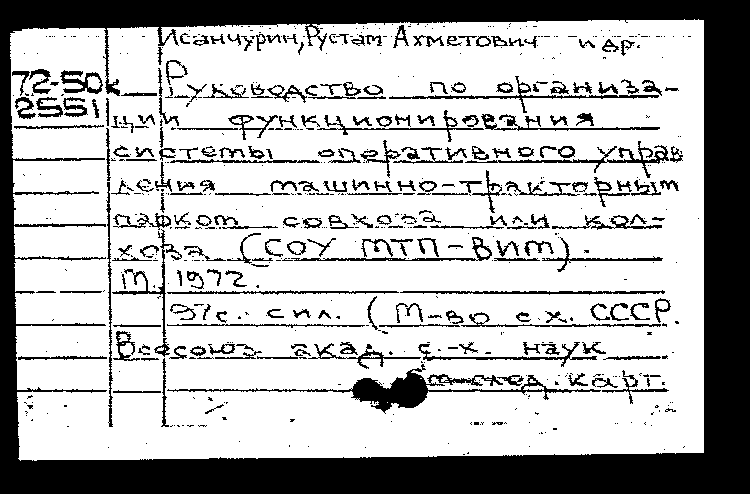 Исанчурин, Рустам Ахметович и др.
72-50к Руководство по организа-
2551 ции функционирования
системы оперативного управ
ления машинно-тракторным
парком совхоза или кол-
хоза (СОУ МТП-ВИМ).
М., 1972.
97с. с ил. (М-во с.х. СССР.
Всесоюз. акад. с.-х. наук
см след. карт.